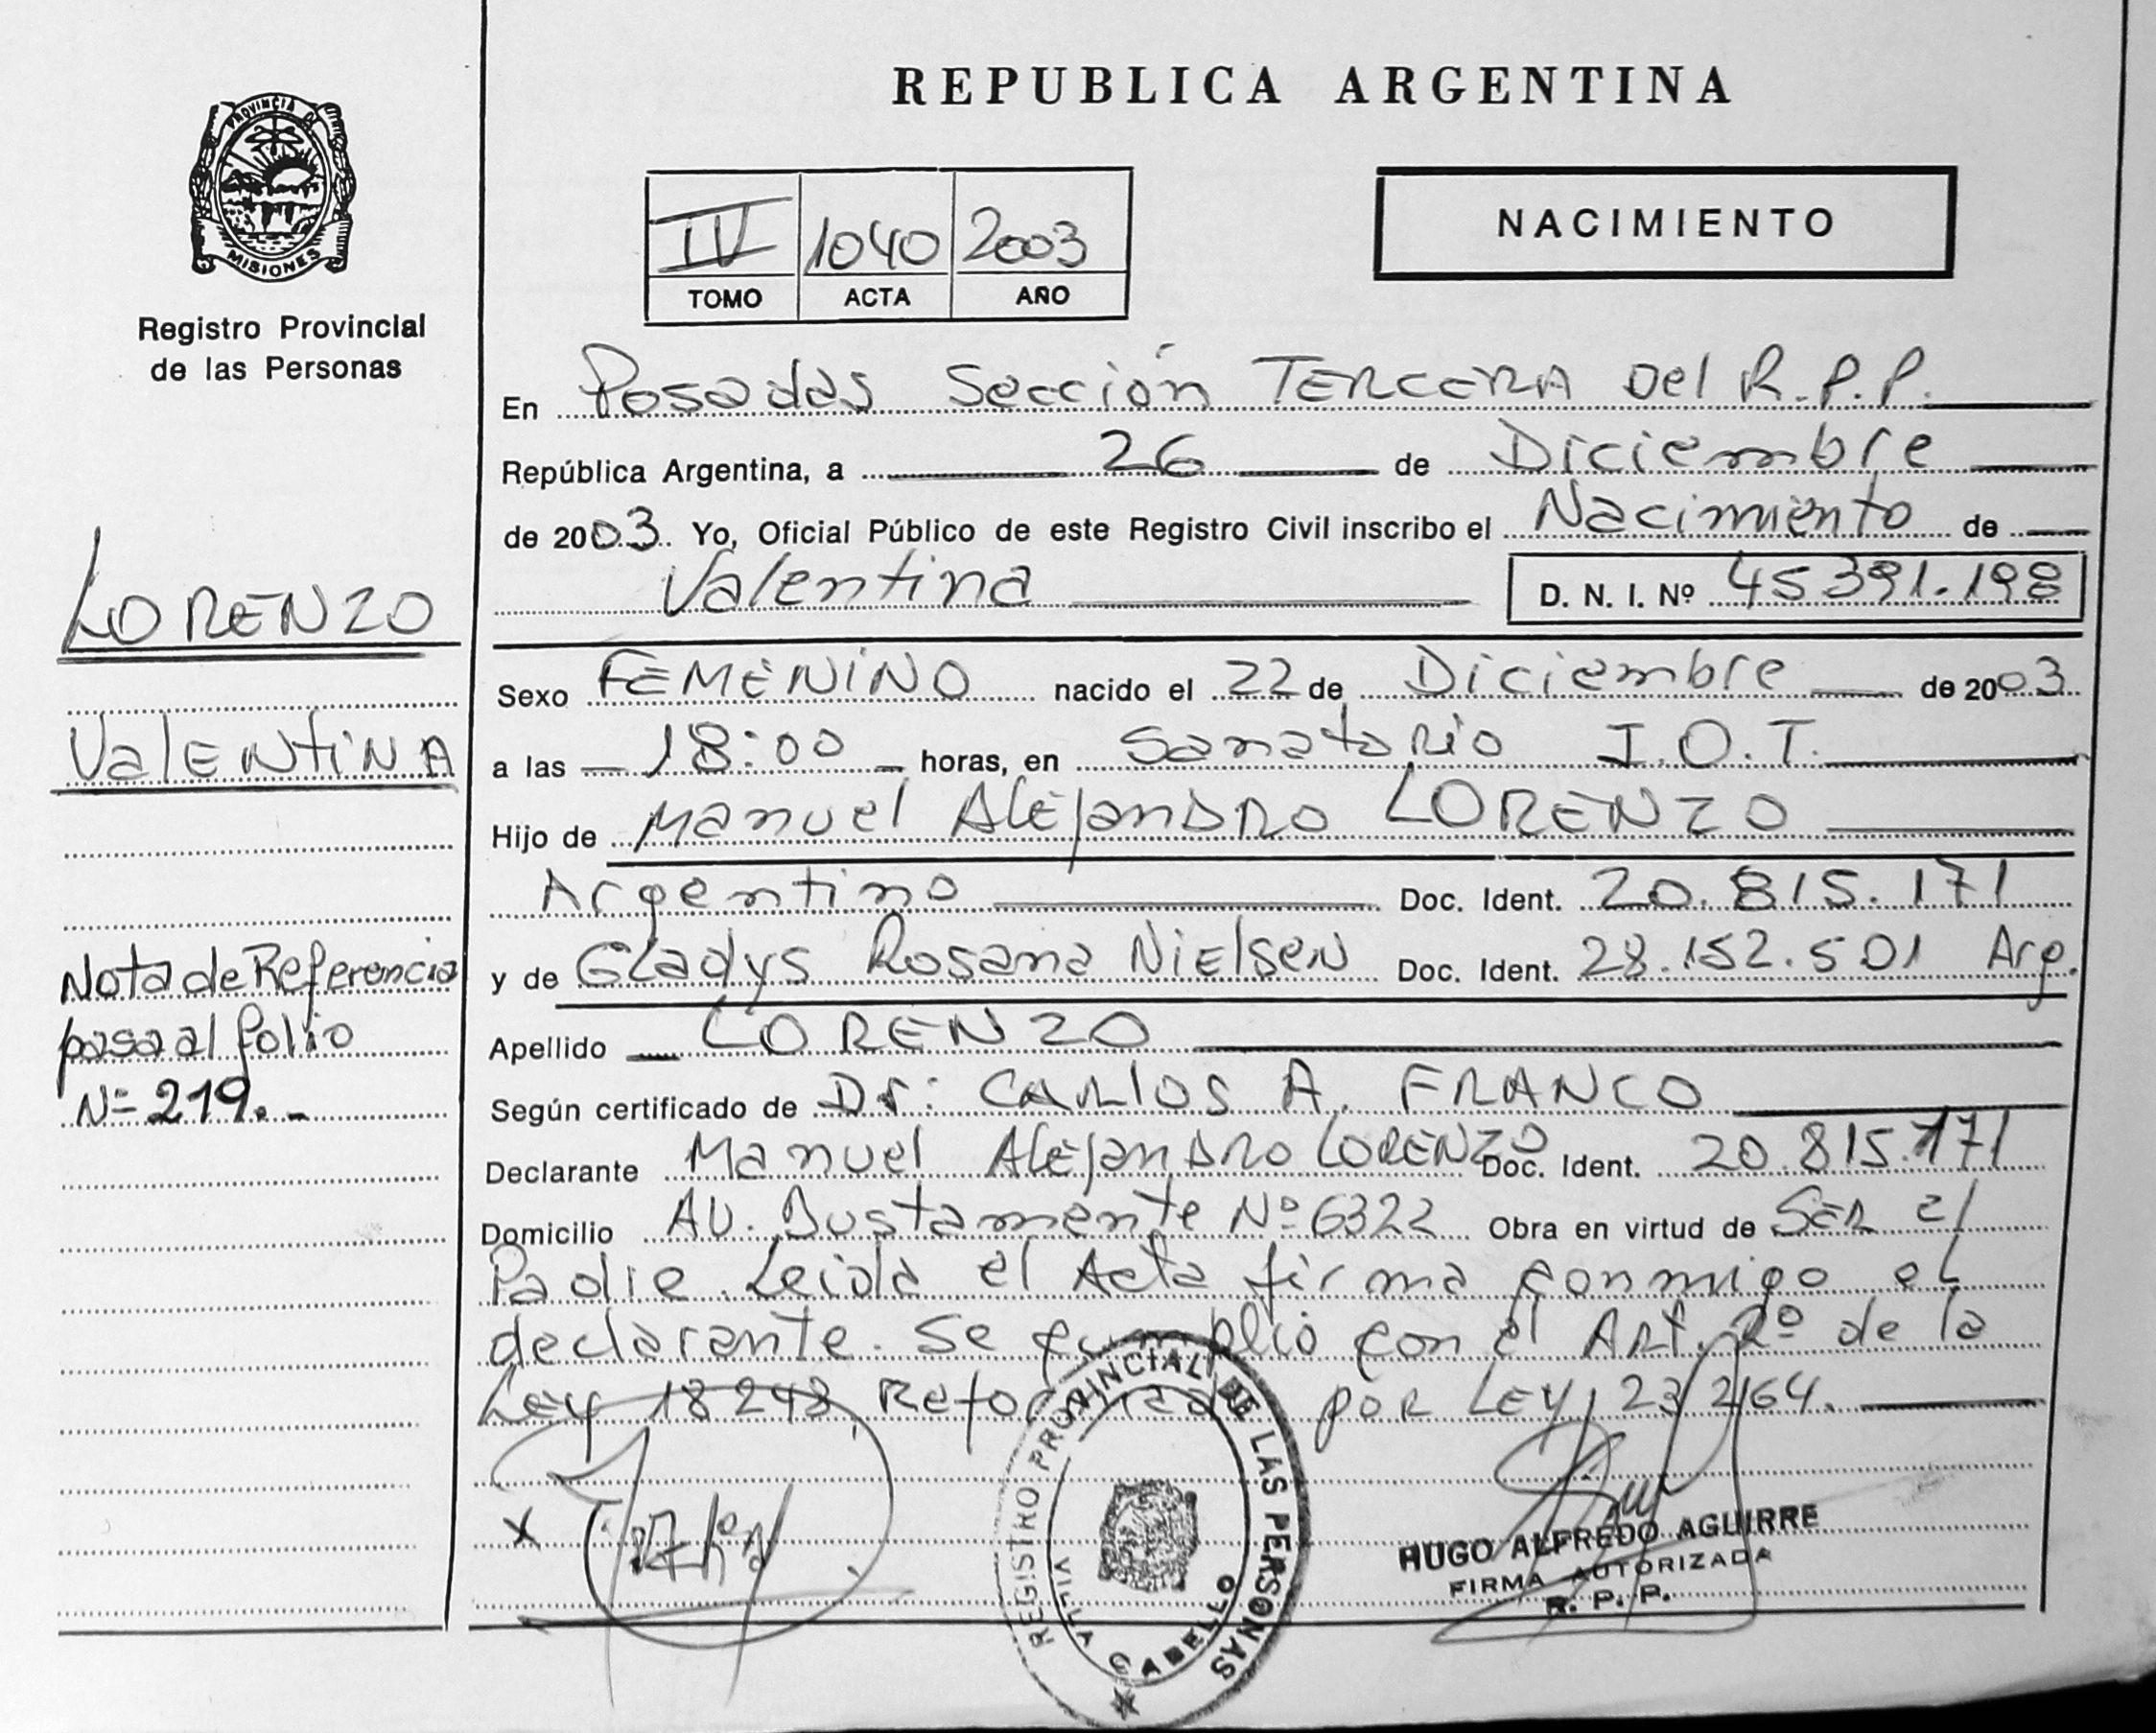 REPUBLICA ARGENTINA
PROVINCIA DE
MISIONES
Registro Provincial
de las Personas
IV 1040 2003
TOMO ACTA AÑO
NACIMIENTO
En Posadas Sección TERCERA Del R.P.P.
República Argentina, a 26 de Diciembre
de 2003. Yo, Oficial Público de este Registro Civil inscribo el Nacimiento de
Valentina D. N. I. Nº 45391.198
LORENZO
ValENtiNA
Nota de Referencia
pasa al folio
Nº 219.-
Sexo FEMENINO nacido el 22 de Diciembre de 2003
a las 18:00 horas, en Sanatorio I.O.T.
Hijo de Manuel Alejandro LORENZO
Argentino Doc. Ident. 20.815.171
y de Gladys Rosana Nielsen Doc. Ident. 28.152.501 Arg.
Apellido LORENZO
Según certificado de Dr: CARLOS A. FRANCO
Declarante Manuel Alejandro LORENZO Doc. Ident. 20.815.171
Domicilio AV. Bustamente Nº 6322 Obra en virtud de SER el
Padre. Leida el Acta firma conmigo el
declarante. Se cumplió con el Art. 2º de la
Ley 18248 Reformada por LEY 23264.
REGISTRO PROVINCIAL DE LAS PERSONAS
VILLA CABELLO
X
HUGO ALFREDO AGUIRRE
FIRMA AUTORIZADA
R. P. P.